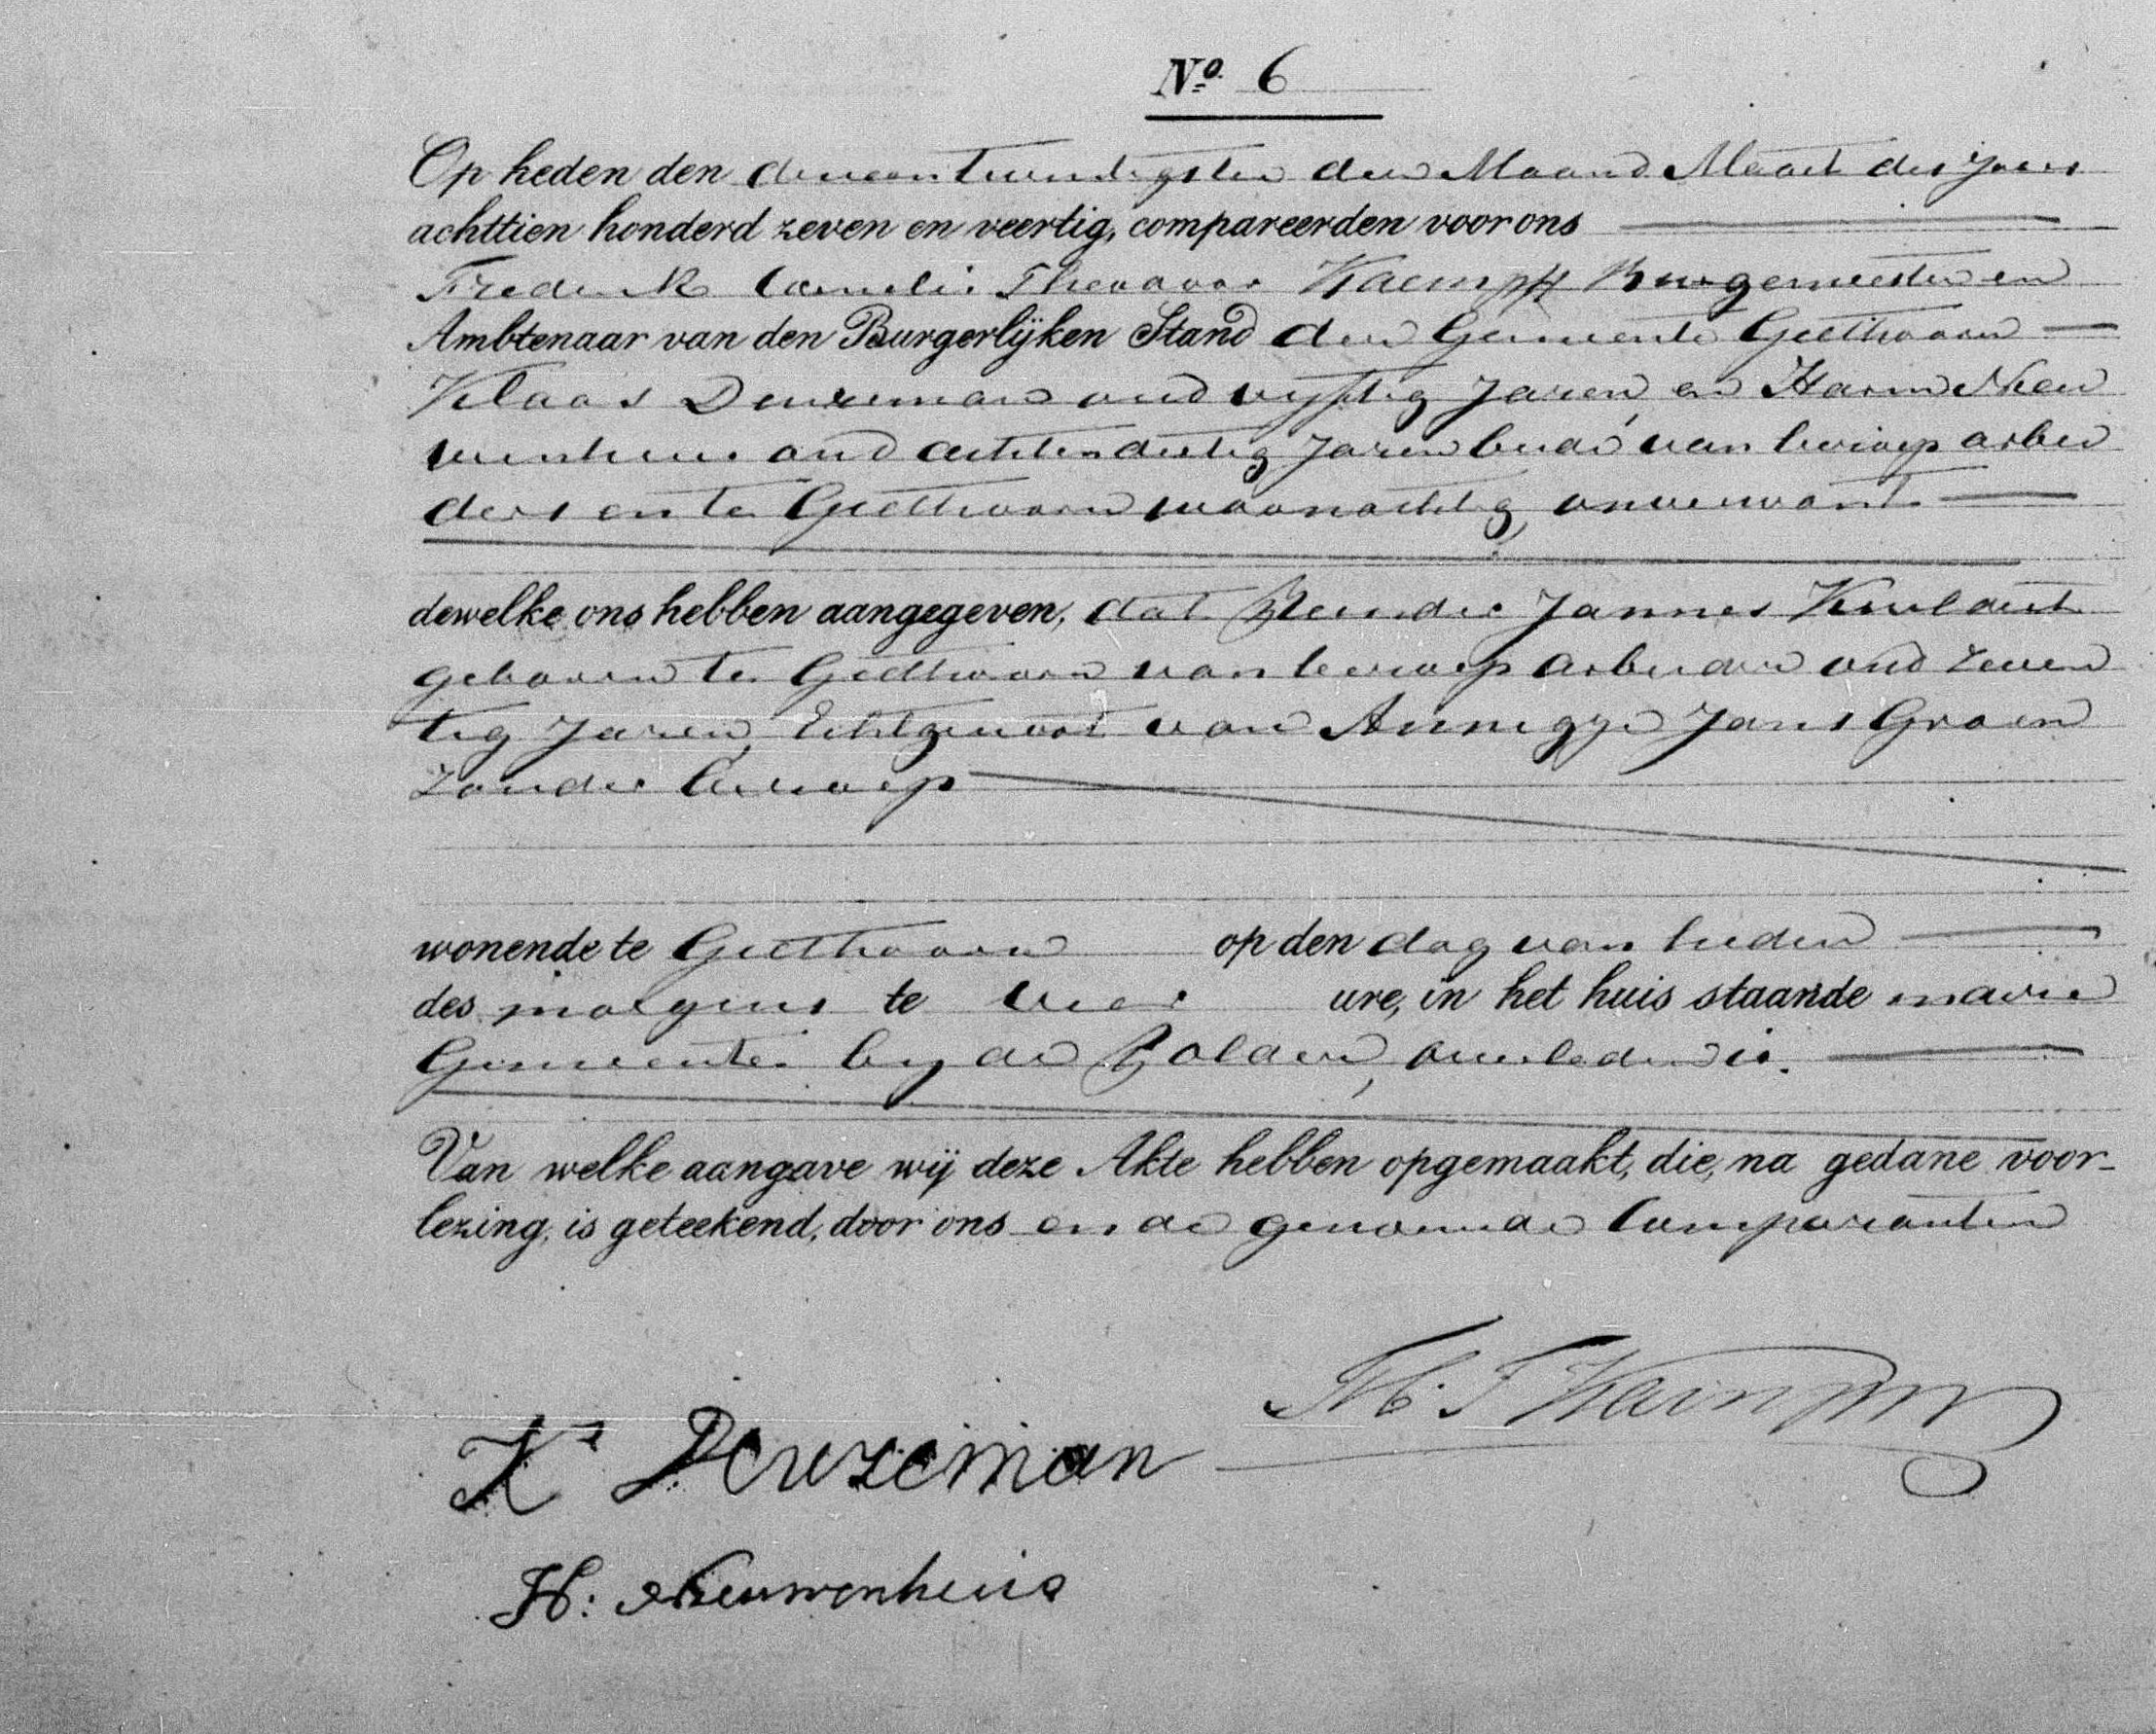 Nº 6
Op heden den der Maand Maart des Jaars
achttien honderd zeven en veertig, compareerden voor ons
Frederik Cornelis Theodoor Kaempff Burgemeester en
Ambtenaar van den Burgerlijken Stand der Gemeente Giethoorn
Klaas Deuzeman oud vyftig Jaren, en Harm Nieu
wenhuis oud achtendertig Jaren beide van beroep arbei
ders en te Giethoorn woonachtig, onverwant
dewelke ons hebben aangegeven, dat Jannes
geboren te Giethoorn van beroep arbeider oud zeven
tig Jaren, Echtgenoot van Annigje Jans Groen
zonder beroep
wonende te Giethoorn op den dag van heden
des morgens te vier ure, in het huis staande in dezer
Gemeente by de Polder, overleden is.
Van welke aangave wij deze Akte hebben opgemaakt, die, na gedane voor-
lezing, is geteekend, door ons en de genoemde Comparanten
Ks Deuzeman
H: Nieuwenhuis